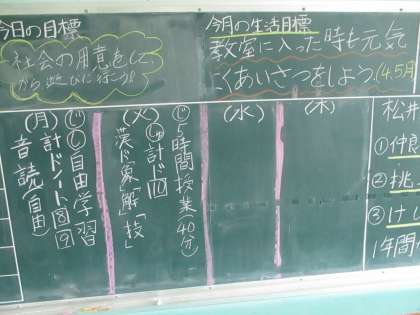 今日の目標
社会の用意をして
から遊びに行こう!!
今月の生活目標
教室に入った時も元気
にくあいさつをしよう。(4,5月
(月)
自由学習
計ドノート⑧⑨
音読(自由)
(火)
5時間授業(40分)
計ド⑩
漢ド「象」「解」「技」
(水)
(木)
松井
①仲良
②挑
③け
1年間